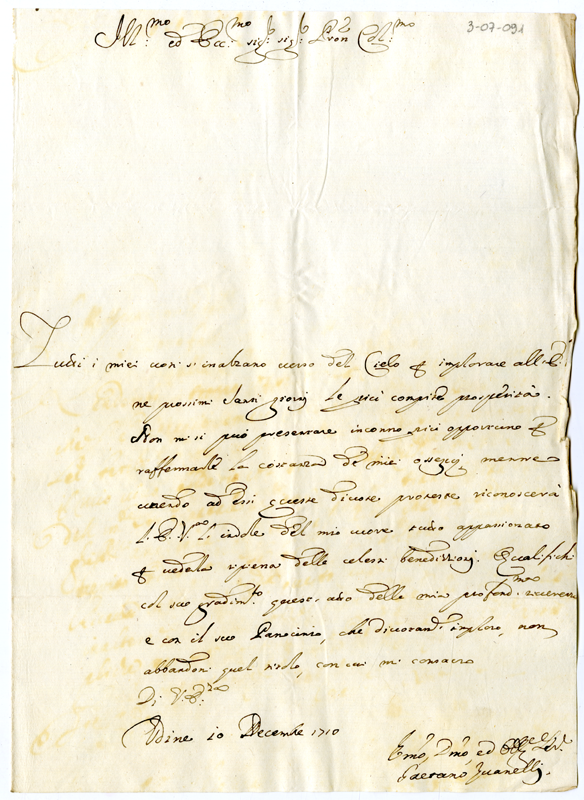 Ill.mo ed Ecc.mo Sig.r Sig.r Pron Col.mo
3-07-091
Tutti i miei voti s'inalzano verso del Cielo p implorare all'E.
ne prossimi Santi giorni le più compite prosperità.
Non mi si può presentare incontro più opportuno p
raffermarle la costanza de miei ossequj, mentre
unendo ad essi queste divote proteste riconoscerà
l'E.V. l'indole del mio cuore tutto appassionato
p vederla ripiena delle celesti benedizioni. Qualifichi
col suo gradim.to quest'atto della mia profond.ma riverenza
e con il suo Patrocinio, che divotam.te imploro, non
abbandoni quel titolo, con cui mi consacro
Di V.E.
Udine 10 Decembre 1710
Umo, Dmo, ed
Gaetano